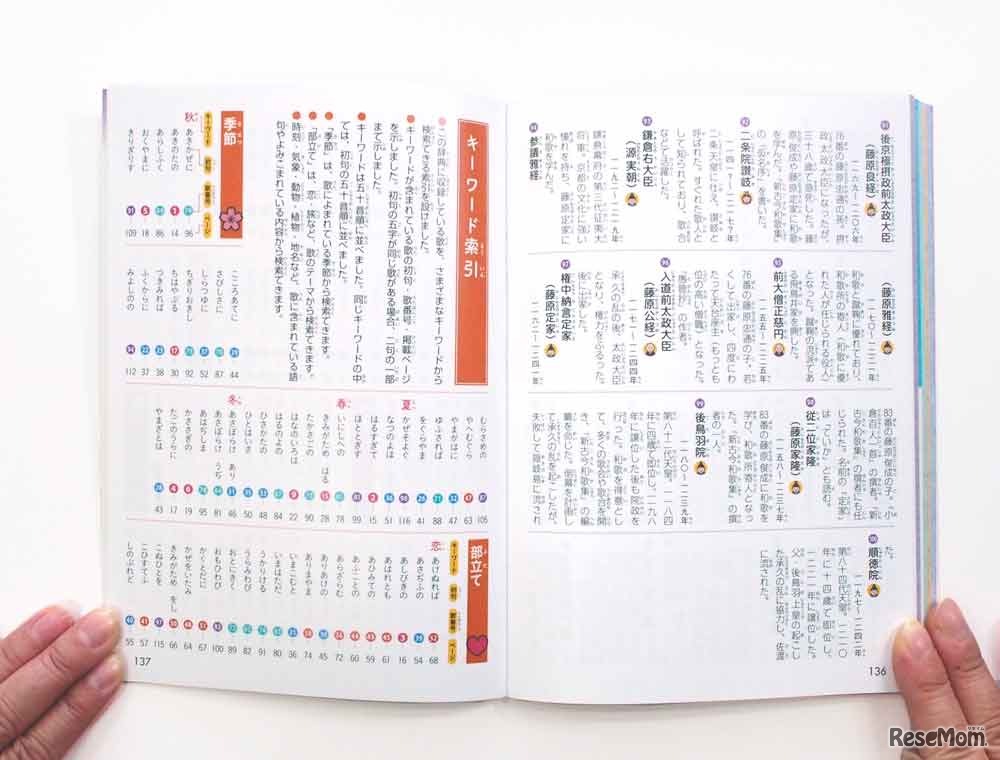 91 後京極摂政前太政大臣
（藤原良経）
一一六九〜一二〇六年
76番の藤原忠通の孫。摂
政太政大臣になったが、
三十八歳で急死した。藤
原俊成や藤原定家に和歌
を学んだ。『新古今和歌集』
の「仮名序」を書いた。
92 二条院讃岐
二条天皇に仕え、讃岐と
呼ばれた。すぐれた歌人と
して知られており、歌合
などで活躍した。
93 鎌倉右大臣
（源実朝）
一一九二〜一二一九年
鎌倉幕府の第三代征夷大
将軍。京都の文化に強い
憧れを持ち、藤原定家に
和歌を学んだ。
94 参議雅経
（藤原雅経）
一一七〇〜一二二一年
和歌と蹴鞠に優れており、
和歌所寄人（和歌に優
れた人が任じられる役人）
となった。蹴鞠の流派であ
る飛鳥井家を開いた。
95 前大僧正慈円
一一五五〜一二二五年
76番の藤原忠通の子。若
くして出家し、四度にわ
たって天台座主（もっとも
位の高い僧職）となった。
『愚管抄』の作者。
96 入道前太政大臣
（藤原公経）
一一七一〜一二四四年
承久の乱の後、太政大臣
となり、権力をふるった。
97 権中納言定家
（藤原定家）
一一六二〜一二四一年
83番の藤原俊成の子。『小
倉百人一首』の撰者。『新
古今和歌集』の撰者にも任
じられた。名前の「定家」
は「ていか」とも読む。
98 従二位家隆
（藤原家隆）
一一五八〜一二三七年
83番の藤原俊成に和歌を
学び、和歌所寄人となっ
た。『新古今和歌集』の撰
者の一人。
99 後鳥羽院
一一八〇〜一二三九年
第八十二代天皇。一一八四
年に四歳で即位し、一一九八
年に譲位した後も院政を
行った。和歌を得意とし
て、多くの歌会や歌合を開
き、『新古今和歌集』の編
纂を命じた。倒幕を計画し
て承久の乱を起こしたが、
失敗して隠岐島に流され
た。
100 順徳院
一一九七〜一二四二年
第八十四代天皇。一二一〇
年に十四歳で即位し、
一二二一年に譲位した。
父・後鳥羽上皇の起こし
た承久の乱に協力し、佐渡
に流された。
136
キーワード索引
●この辞典に収録している歌を、さまざまなキーワードから
検索できる索引を設けました。
●キーワードが含まれている歌の初句・歌番号・掲載ページ
を示しました。初句の五字が同じ歌がある場合、二句の一部
まで示しました。
●キーワードは五十音順に並べました。同じキーワードの中
では、初句の五十音順に並べました。
●「季節」は、歌によまれている季節から検索できます。
●「部立て」は、恋・旅など、歌のテーマから検索できます。
●時刻・気象・動物・植物・地名など、歌に含まれている語
句やよみこまれている内容から検索できます。
季節
キーワード 初句 歌番号 ページ
秋
あきかぜに 79 96
あきのたの 1 14
あらしふく 69 86
おくやまに 5 18
きりぎりす 91 109
こころあてに 29 44
さびしさに 70 87
しらつゆに 37 52
ちぎりおきし 75 92
ちはやぶる 17 30
つきみれば 23 38
ふくからに 22 37
みよしのの 94 112
むらさめの 87 105
やへむぐら 47 63
やまがはに 32 47
ゆふされば 71 88
をぐらやま 26 41
夏
かぜそよぐ 98 116
なつのよは 36 51
はるすぎて 2 15
ほととぎす 81 99
春
いにしへの 61 78
きみがため はる 15 28
たかさごの 73 90
はなのいろは 9 22
はるのよの 67 84
ひさかたの 33 48
ひとはいさ 35 50
冬
あさぼらけ あり 31 46
あさぼらけ うぢ 64 81
あはぢしま 78 95
かささぎの 6 19
たごのうらに 4 17
やまざとは 28 43
部立て
キーワード 初句 歌番号 ページ
恋
あけぬれば 52 68
あさぢふの 39 54
あしびきの 3 16
あはれとも 45 61
あひみての 43 59
あふことの 44 60
あらざらむ 56 72
ありあけの 30 45
ありまやま 58 74
いまこむと 21 36
いまはただ 63 80
うかりける 74 91
うらみわび 65 82
おとにきく 72 89
おもひわび 82 100
かくとだに 51 67
かぜをいたみ 48 64
きみがため をし 50 66
こぬひとを 97 115
こひすてふ 41 57
しのぶれど 40 55
137
ReseMom